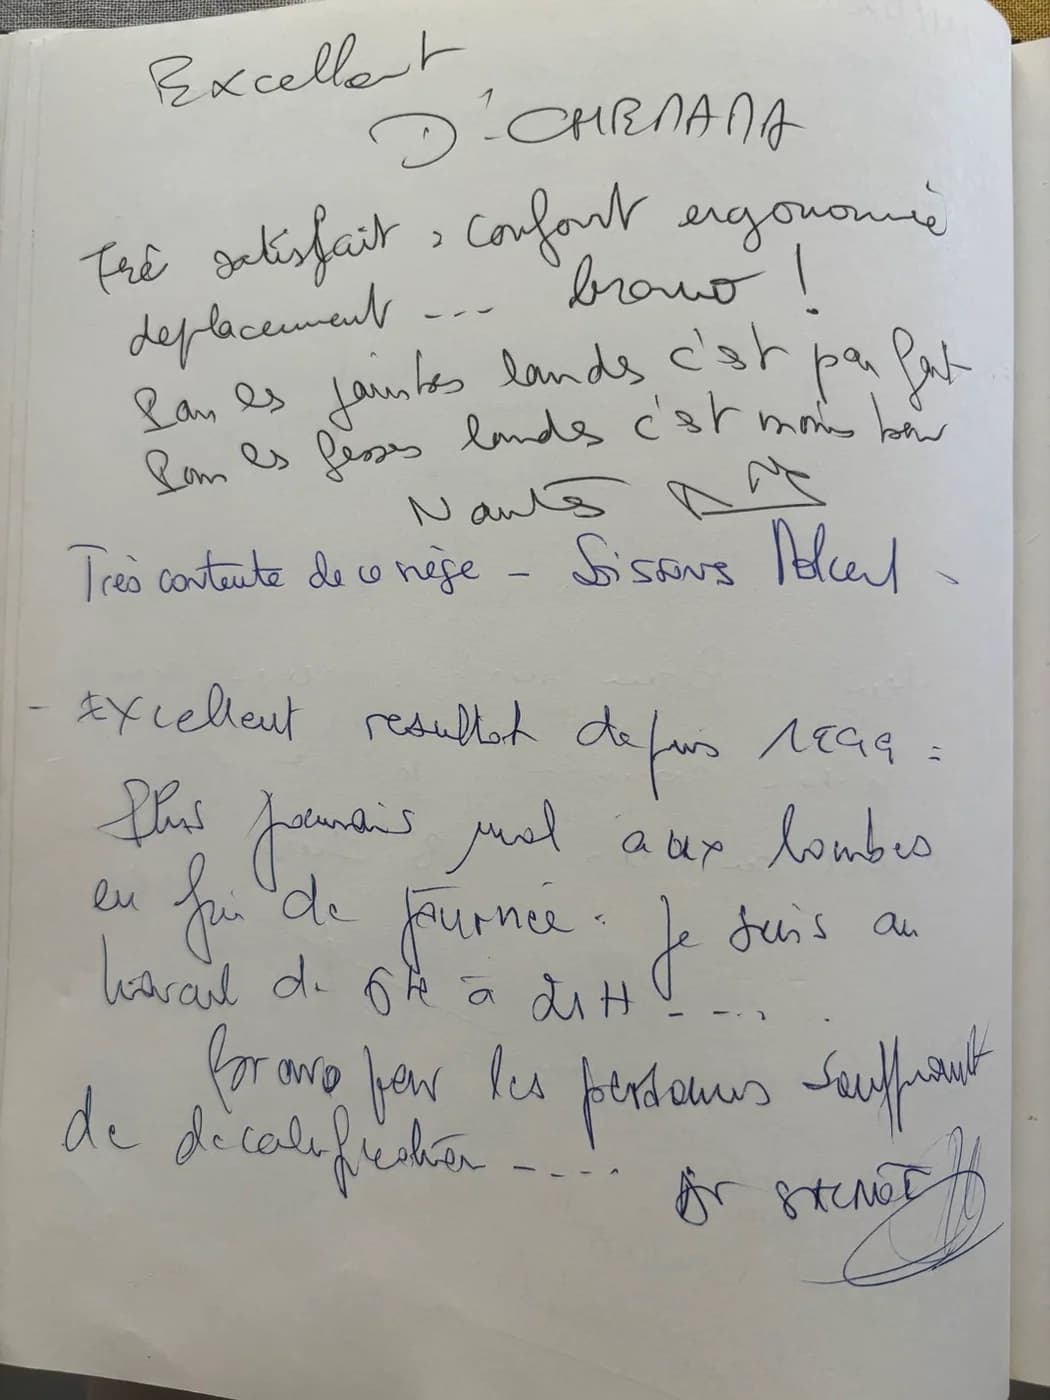 Excellent
Tré satisfait, confort ergonomie
deplacement --- bravo !
Pour les jambes lourdes c'est parfait
Pour les fesses lourdes c'est moins bon
Nantes
Très contente de ce siège -
- Excellent resultat depuis 1999 =
Plus jamais mal aux lombes
en fin de journée. Je suis au
travail de 6H à 21H - - - .
Bravo pour les personnes souffrant
de decalcification - - - - .
Dr